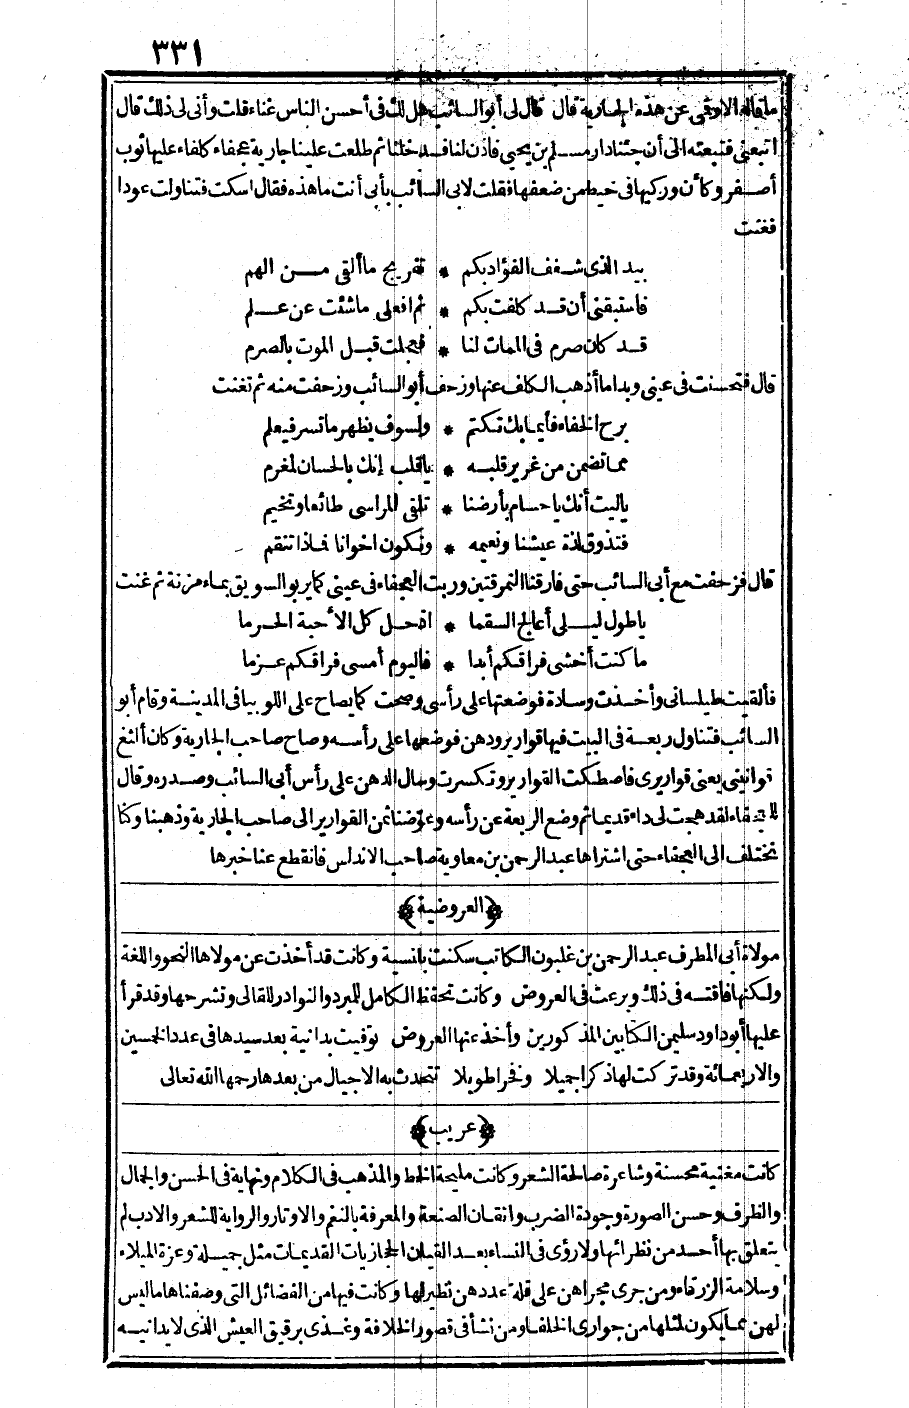 ٣٣١
ما قاله الارقمى عن هذه الجارية قال قال لى أبو السائب هل لك فى أحسن الناس غناء قلت وأنى لى ذلك قال
اتبعنى فتبعته الى أن جئنا دار مسلم بن يحيى فأذن لنا فدخلنا ثم طلعت علينا جارية عجفاء كلفاء عليها ثوب
أصفر وكأن وركيها فى خيط من ضعفها فقلت لابى السائب بأبى أنت ما هذه فقال اسكت فتناولت عودا
فغنت
بيد الذى شغف الفؤاد بكم * تفريج ما ألقى من الهم
فاستبقنى أن قد كلفت بكم * ثم افعلى ما شئت عن علم
قد كان صرم فى الممات لنا * فعجلت قبل الموت بالصرم
قال فتحسنت فى عينى وبدا ما أذهب الكلف عنها وزحف أبو السائب وزحفت منه ثم تغنت
برح الخفاء فأيما بك تكتم * ولسوف يظهر ما تسر فيعلم
مما تضمن من غرير قلبه * يا قلب إنك بالحسان لمغرم
يا ليت أنك يا حسام بأرضنا * تلقى المراسى طائعا وتخيم
فتذوق لذة عيشنا ونعيمه * ونكون اخوانا فماذا تنقم
قال فزحفت مع أبى السائب حتى فارقنا النمرقتين وربت العجفاء فى عينى كما يربو السويق بماء مزنة ثم غنت
يا طول ليلى أعالج السقما * ادخل كل الأحبة الحرما
ما كنت أخشى فراقكم أبدا * فاليوم أمسى فراقكم عزما
فألقيت طيلسانى وأخذت وسادة فوضعتها على رأسى وصحت كما يصاح على اللوبيا فى المدينة وقام أبو
السائب فتناول ربعة فى البيت فيها قوارير ودهن فوضعها على رأسه وصاح صاحب الجارية وكان ألثغ
قوانينى يعنى قواريرى فاصطكت القوارير وتكسرت وسال الدهن على رأس أبى السائب وصدره وقال
للعجفاء لقد هجت لى داء قديما ثم وضع الربعة عن رأسه وعوضنا ثمن القوارير الى صاحب الجارية وذهبنا وكنا
نختلف الى العجفاء حتى اشتراها عبد الرحمن بن معاوية صاحب الاندلس فانقطع عنا خبرها
﴿العروضية﴾
مولاة أبى المطرف عبد الرحمن بن غلبون الكاتب سكنت بلنسية وكانت قد أخذت عن مولاها النحو واللغة
ولكنها فاقته فى ذلك وبرعت فى العروض وكانت تحفظ الكامل للمبرد والنوادر للقالى وتشرحها وقد قرأ
عليها أبو داود سليمن الكتابين المذكورين وأخذ عنها العروض توفيت بدانية بعد سيدها فى عدد الخمسين
والاربعمائة وقد تركت لها ذكرا جميلا وفخرا طويلا تتحدث به الاجيال من بعدها رحمها الله تعالى
﴿عريب﴾
كانت مغنية محسنة وشاعرة صالحة الشعر وكانت مليحة الخط والمذهب فى الكلام ونهاية فى الحسن والجمال
والظرف وحسن الصورة وجودة الضرب واتقان الصنعة والمعرفة بالنغم والاوتار والرواية للشعر والادب لم
يتعلق بها أحد من نظرائها ولا رؤى فى النساء بعد القيان الحجازيات القديمات مثل جميلة وعزة الميلاء
وسلامة الزرقاء ومن جرى مجراهن على قلة عددهن نظير لها وكانت فيها من الفضائل التى وصفناها ما ليس
لهن مما يكون لمثلها من جوارى الخلفاء ومن نشأ فى قصور الخلافة وغذى برقيق العيش الذى لا يدانيه